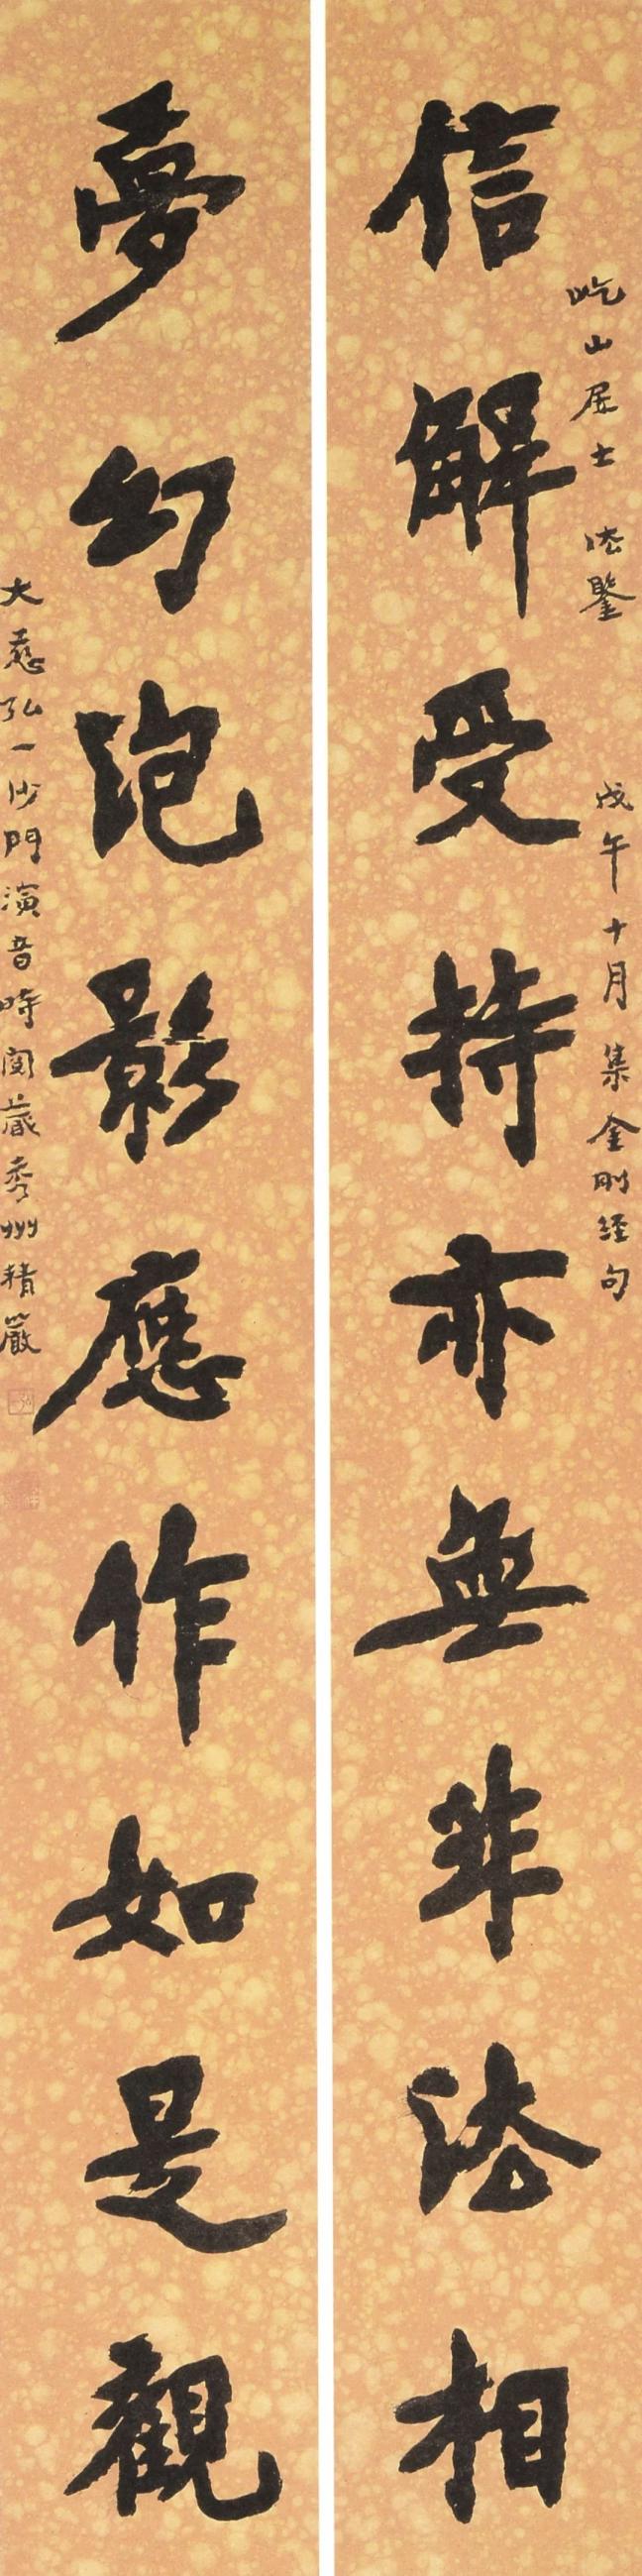 屹山居士 法鑒
戊午十月集金剛經句
信解受持亦無非法相
夢幻泡影應作如是觀
大慈弘一沙門演音時閱藏秀州精嚴